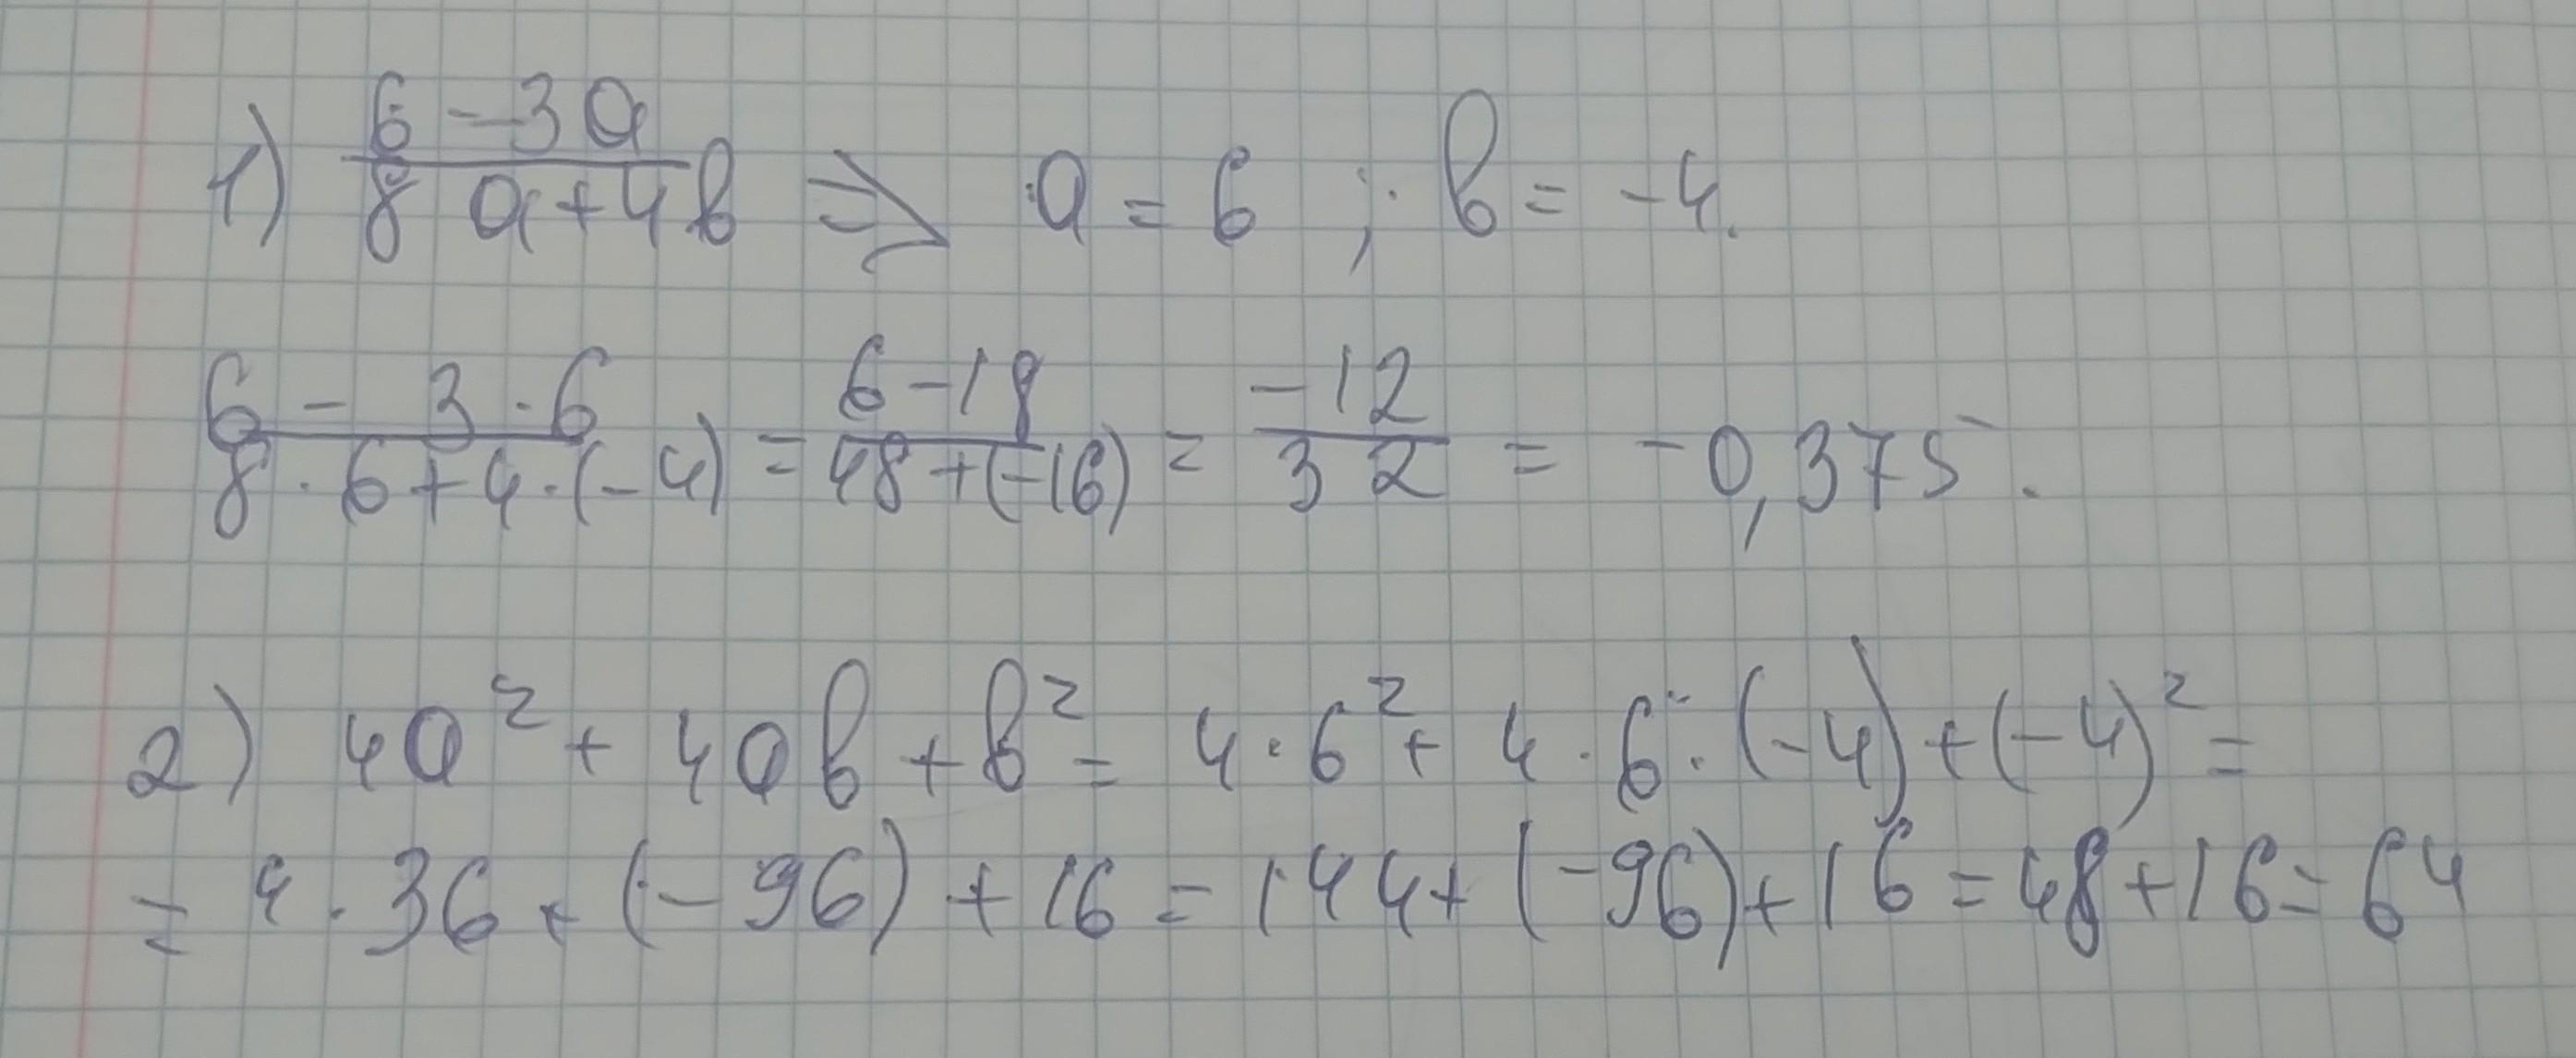 1) (6 - 3a)/(8a + 4b) => a = 6 ; b = -4.
(6 - 3 · 6)/(8 · 6 + 4 · (-4)) = (6 - 18)/(48 + (-16)) = (-12)/(32) = -0,375.
2) 4a² + 4ab + b² = 4 · 6² + 4 · 6 · (-4) + (-4)² =
= 4 · 36 + (-96) + 16 = 144 + (-96) + 16 = 48 + 16 = 64